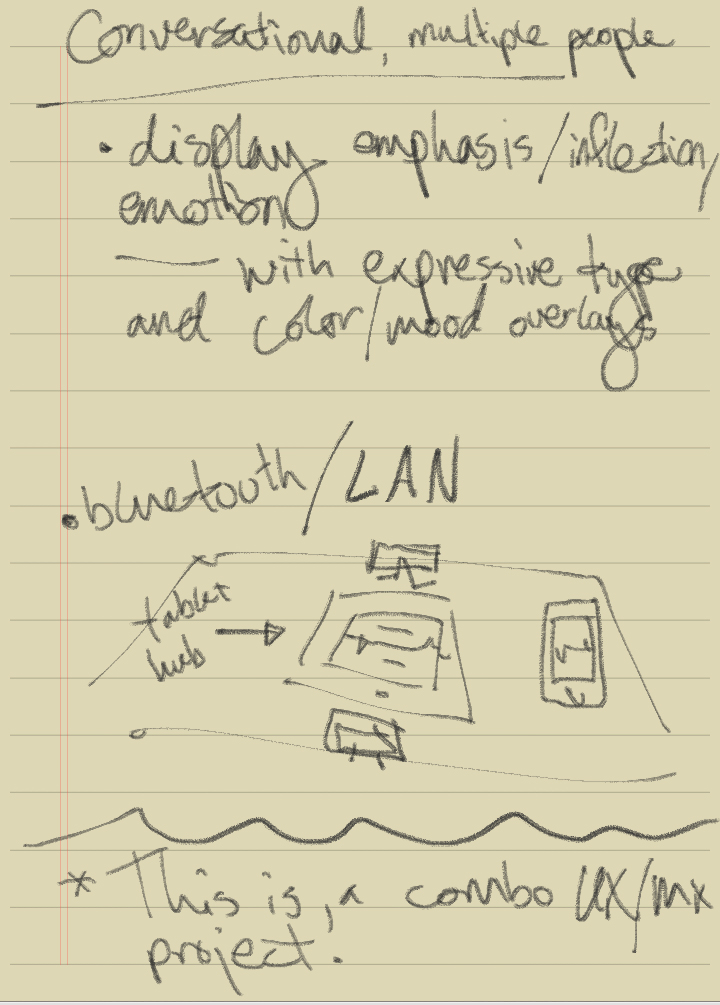 Conversational, multiple people
• display emphasis/inflection/
emotion
— with expressive type
and color/mood overlays
• bluetooth/LAN
tablet
hub
* This is, a combo UX/mx
project.